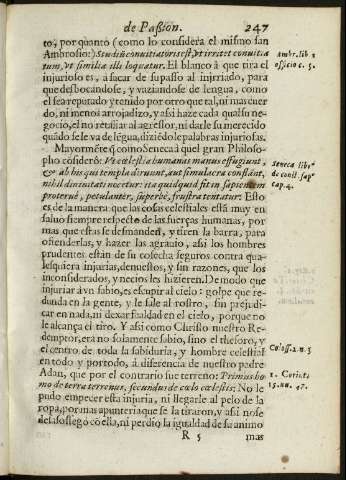 de Paßion. 247
to, por quanto (como lo considera el mismo san
Ambrosio:) Studiũ conuitiatoris est, vt irritet conuitia
tum, vt similia illi loquatur. El blanco â que tira el
injurioso es, a sacar de su passo al injuriado, para
que desbocandose, y vaziandose de lengua, como
el sea reputado y tenido por otro que tal, ni mas cuer
do, ni menos arrojadizo, y así haze cada qual su ne-
gocio, el no retaliar al agressor, ni darle su merecido
quãdo se le va de lẽgua, diziẽdole palabras injuriosas.
Mayormẽte q̃ como Seneca â quel gran Philoso-
pho cõsiderô: Ve cœlestia humanas manus effugiunt,
& ab his qui templa diruunt, aut simulacra conflãnt,
nihil diuinitati nocetur: ita quidquid fit in sapientem
proterué, petulanter, superbé, frustra tentatur: Esto
es de la manera que las cosas celestiales està muy en
saluo siempre respecto de las fuerças humanas, por
mas que estas se desmanden, y tiren la barra, para
ofenderlas, y hazer las agrauio, asi los hombres
prudentes están de su cosecha seguros contra qua-
lesquiera injurias, denuestos, y sin razones, que los
inconsiderados, y necios les hizieren. De modo que
injuriar â vn sabio, es escupir al cielo: golpe que re-
dunda en la gente, y le sale al rostro, sin prejudi-
car en nada, ni dexar fealdad en el cielo, porque no
le alcança el tiro. Y asi como Christo nuestro Re-
demptor, era no solamente sabio, sino el thesoro, y
el centro de toda la sabiduria, y hombre celestial
en todo y portodo, á diferencia de nuestro padre
Adan, que por el contrario fue terreno: Primus ho
mo de terra terrenus, secundus de cœlo cœlestis: No le
pudo empecer esta injuria, ni llegarle al pelo de la
ropa, por mas apunteria que se la tiraron, y asi no se
desasosegó cõ ella, ni perdio la igualdad de su animo
R 5 mas
Ambr. lib 1
officio c. 5.
Seneca libr
de const. sap
cap. 4.
Coloss. 2. n. 3
1. Corint.
15. nu. 47.